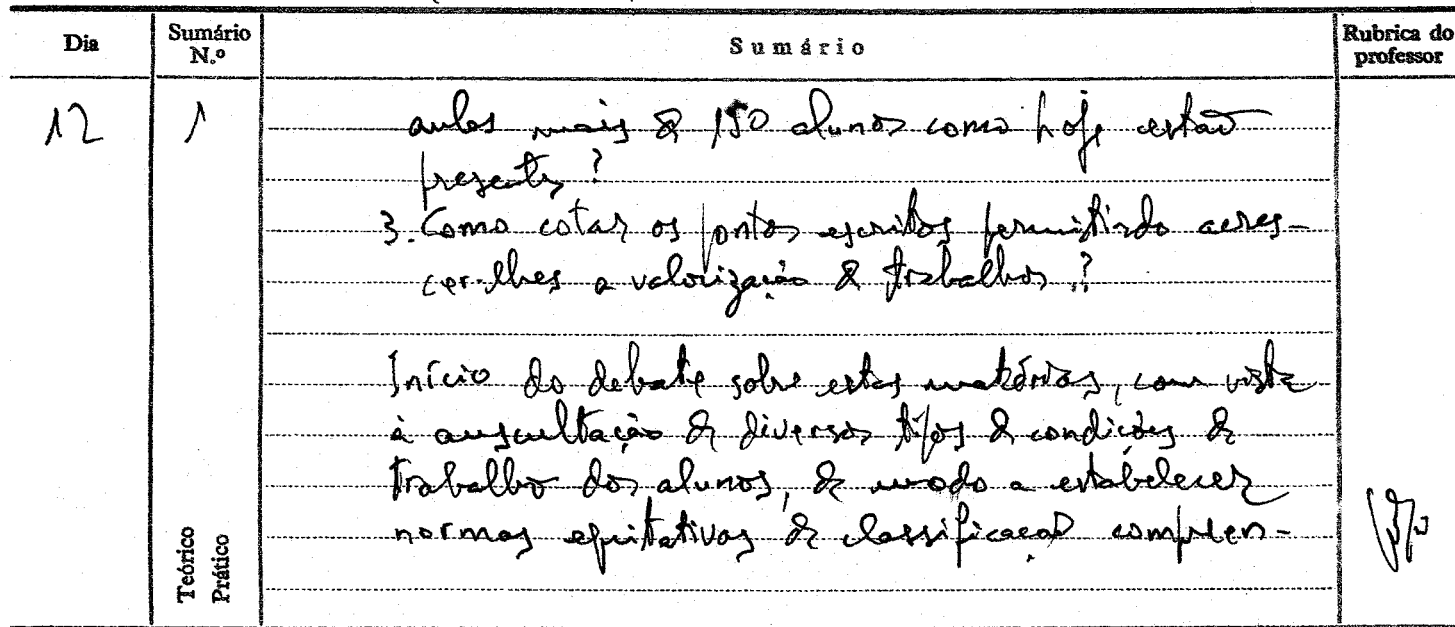 Dia
Sumário
N.º
Sumário
Rubrica do
professor
12
1
aulas mais de 150 alunos como hoje estão
presentes?
3. Como cotar os pontos escritos permitindo acres-
cer-lhes a valorização de trabalhos?
Início do debate sobre estas matérias, com vista
à auscultação de diversos tipos de condições de
trabalho dos alunos, de modo a estabelecer
normas equitativas de classificação compreen-
Teórico
Prático